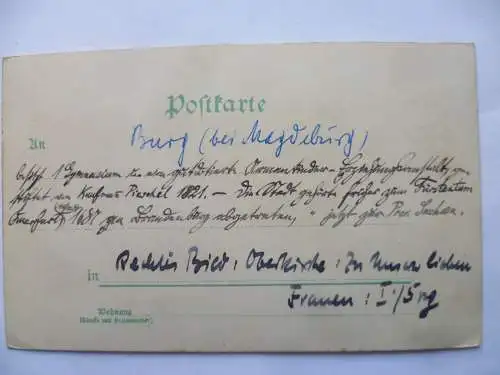 Postkarte
An
Burg (bei Magdeburg)
besitzt 1 Gymnasium u. eine
stiftet von Kaufmann 1821. – Die Stadt gehörte früher zum Fürstentum
Querfurt, 1687 an Brandenburg abgetreten, jetzt zur Prov. Sachsen.
in
Rechtes Bild: Oberkirche: Zu Unser lieben
Frauen: I./5 ng
Wohnung
(Straße und Hausnummer)